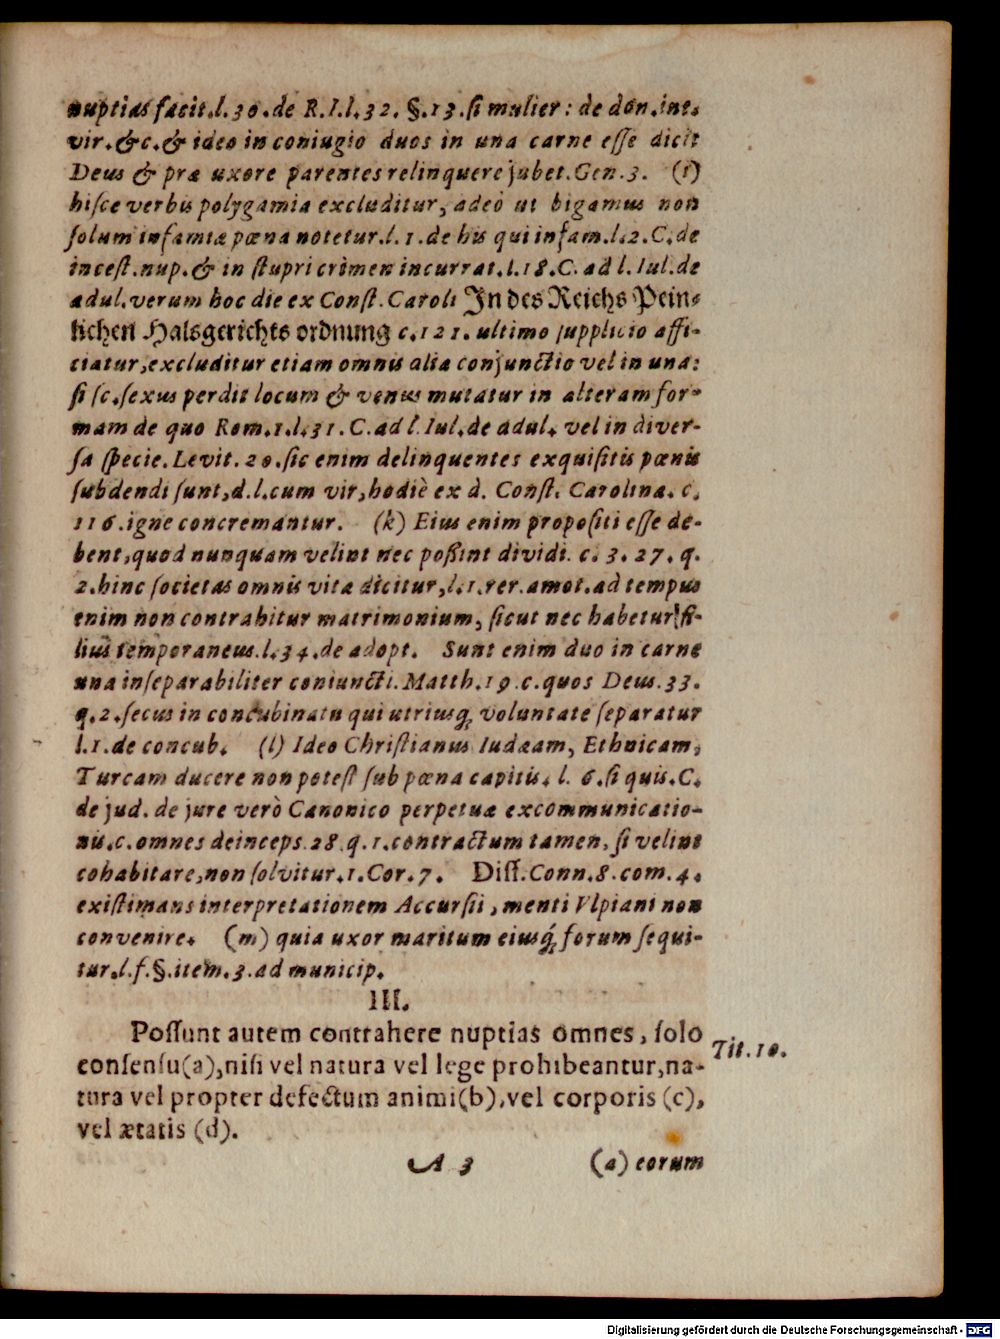 nuptias facit.l.30.de R.I.l.32. §.13.ſi mulier: de don.int.
vir.&c.& ideo in coniugio duos in una carne eſſe dicit
Deus & præ uxore parentes relinquere jubet.Gen.3. (i)
hiſce verbis polygamia excluditur, adeò ut bigamus non
ſolum infamiæ pœna notetur.l.1.de his qui infam.l.2.C.de
inceſt.nup.& in ſtupri crimen incurrat.l.18.C. ad l.Iul.de
adul.verum hoc die ex Conſt.Caroli In des Reichs Pein-
lichen Halsgerichts ordnung c.121.ultimo ſupplicio affi-
ciatur,excluditur etiam omnis alia conjunctio vel in una:
ſi ſc.ſexus perdit locum & venus mutatur in alteram for-
mam de quo Rom.1.l.31.C.ad l.Iul.de adul. vel in diver-
ſa ſpecie.Levit.20.ſic enim delinquentes exquiſitis pœnis
ſubdendi ſunt,d.l.cum vir,hodiè ex d. Conſt. Carolina. c.
116.igne concremantur. (k) Eius enim propoſiti eſſe de-
bent,quod nunquam velint nec poſſint dividi. c. 3. 27. q.
2.hinc ſocietas omnis vitæ dicitur,l.1.rer.amot.ad tempus
enim non contrahitur matrimonium, ſicut nec habetur fi-
lius temporaneus.l.34.de adopt. Sunt enim duo in carne
una inſeparabiliter coniuncti.Matth.19.c.quos Deus.33.
q.2.ſecus in concubinatu qui utriusq; voluntate ſeparatur
l.1.de concub. (l) Ideo Chriſtianus Iudæam, Ethnicam,
Turcam ducere non poteſt ſub pœna capitis. l. 6.ſi quis.C.
de jud. de jure verò Canonico perpetuæ excommunicatio-
nis.c.omnes deinceps.28.q.1.contractum tamen, ſi velint
cohabitare,non ſolvitur.1.Cor.7. Diſſ.Conn.8.com.4.
exiſtimans interpretationem Accurſii, menti Vlpiani non
convenire. (m) quia uxor maritum eiusq́; forum ſequi-
tur.l.f.§.item.3.ad municip.
III.
Poſſunt autem contrahere nuptias omnes, ſolo
conſenſu(a),niſi vel natura vel lege prohibeantur,na-
tura vel propter defectum animi(b),vel corporis (c),
vel ætatis (d).
Tit.10.
A 3 (a) eorum
Digitalisierung gefördert durch die Deutsche Forschungsgemeinschaft - DFG